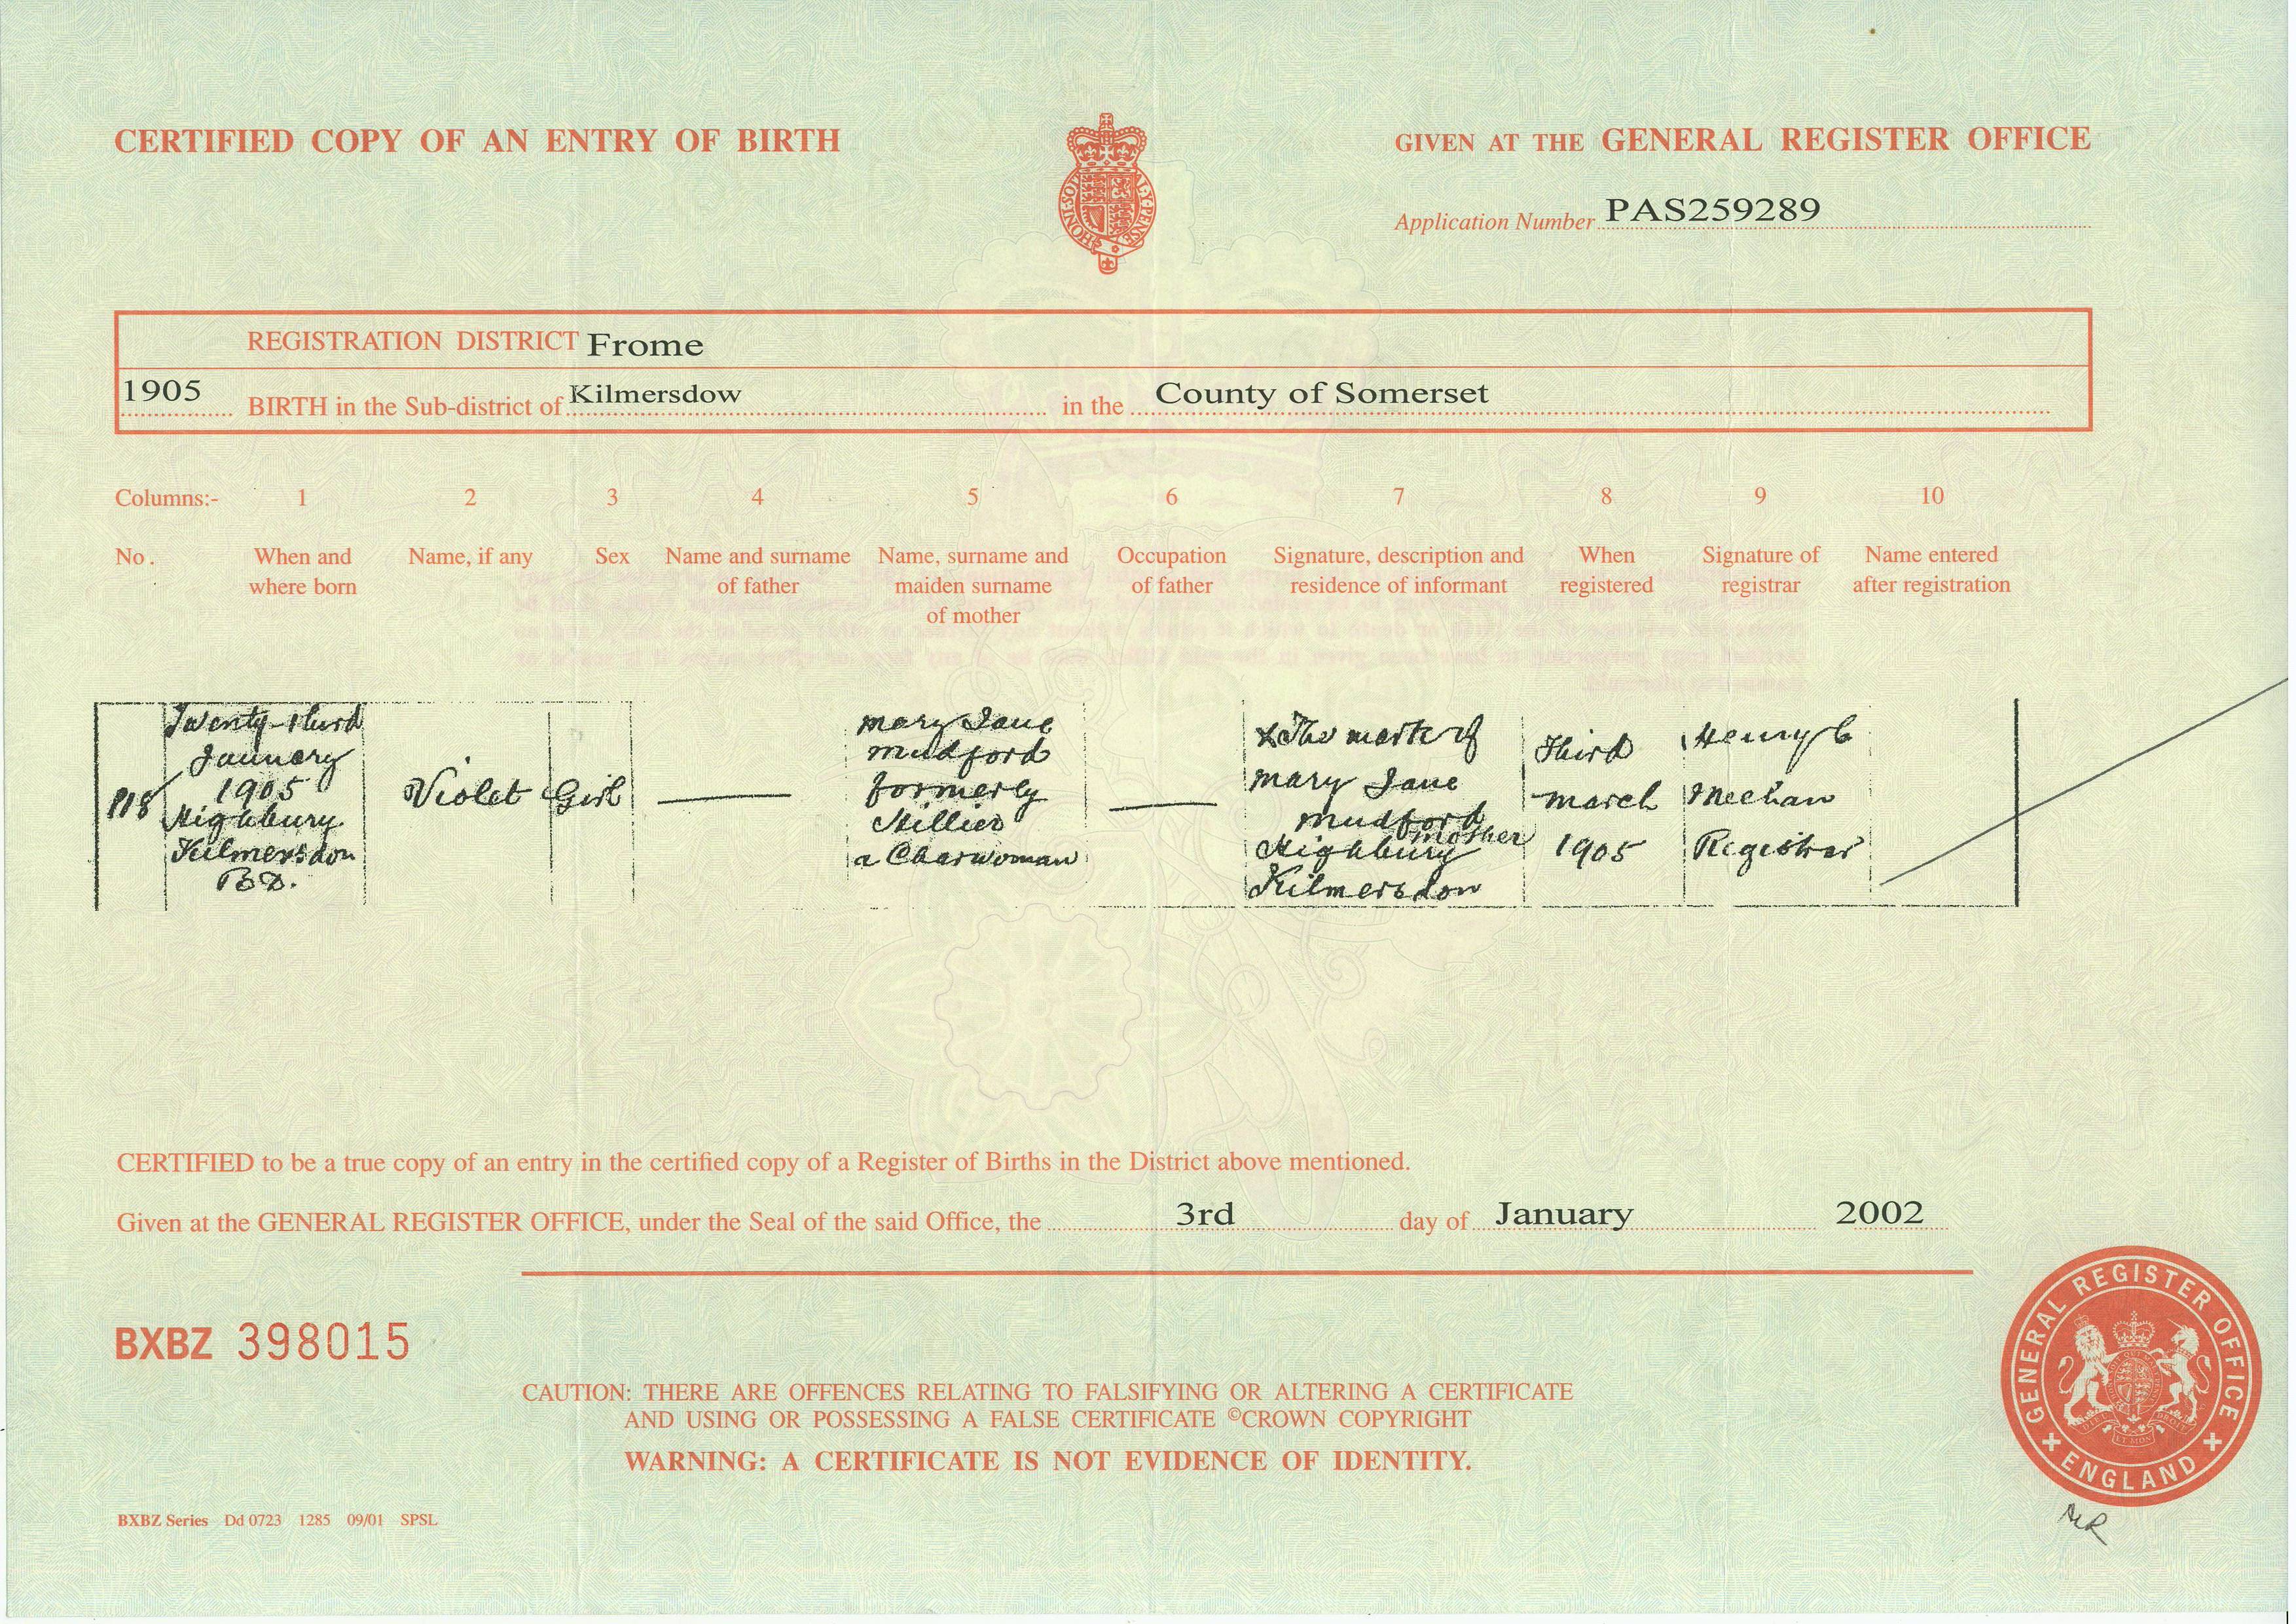 CERTIFIED COPY OF AN ENTRY OF BIRTH
GIVEN AT THE GENERAL REGISTER OFFICE
Application Number PAS259289
REGISTRATION DISTRICT Frome
1905 BIRTH in the Sub-district of Kilmersdow in the County of Somerset
Columns:- 1 2 3 4 5 6 7 8 9 10
No. When and where born
Name, if any
Sex
Name and surname of father
Name, surname and maiden surname of mother
Occupation of father
Signature, description and residence of informant
When registered
Signature of registrar
Name entered after registration
118
Twenty-third
January
1905
Highbury
Kilmersdon
Violet
Girl
Mary Jane
Mudford
formerly
Hillier
a Charwoman
X The mark of
Mary Jane
Mudford
Mother
Highbury
Kilmersdon
Third
March
1905
Henry C
Meehan
Registrar
CERTIFIED to be a true copy of an entry in the certified copy of a Register of Births in the District above mentioned.
Given at the GENERAL REGISTER OFFICE, under the Seal of the said Office, the 3rd day of January 2002
BXBZ 398015
CAUTION: THERE ARE OFFENCES RELATING TO FALSIFYING OR ALTERING A CERTIFICATE
AND USING OR POSSESSING A FALSE CERTIFICATE ©CROWN COPYRIGHT
WARNING: A CERTIFICATE IS NOT EVIDENCE OF IDENTITY.
BXBZ Series Dd 0723 1285 09/01 SPSL
GENERAL REGISTER OFFICE
ENGLAND